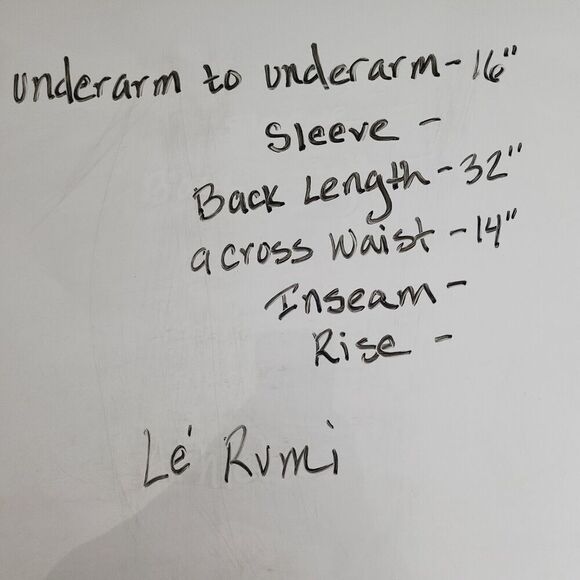 underarm to underarm - 16"
Sleeve -
Back Length - 32"
across Waist - 14"
Inseam -
Rise -
Lé Rumi